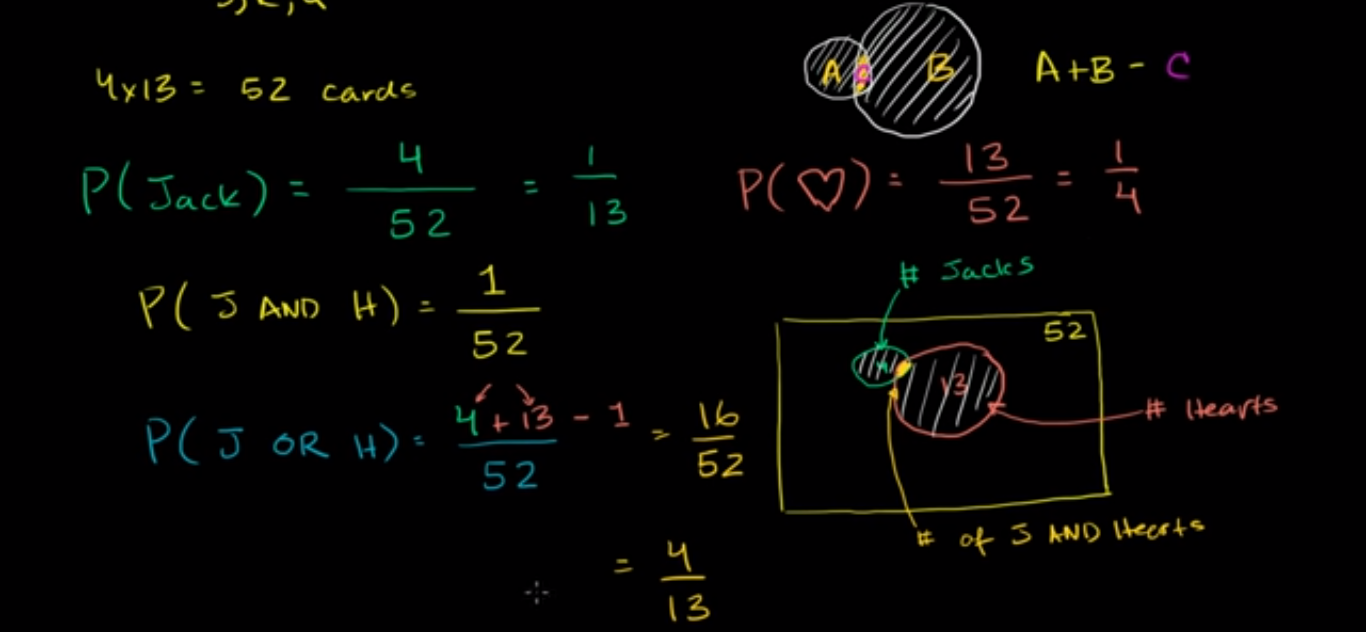 4x13 = 52 cards
A B C
A+B - C
P(Jack) = 4/52 = 1/13
P(♡) = 13/52 = 1/4
# Jacks
P( J AND H) = 1/52
52
4
13
# Hearts
P( J OR H) = 4+13 - 1/52 = 16/52
# of J AND Hearts
= 4/13